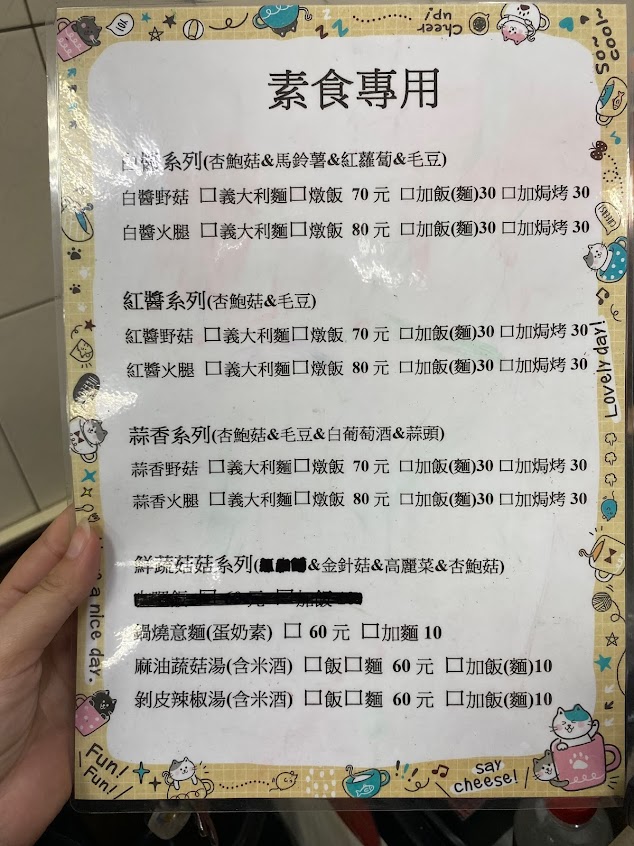 素食專用
白醬系列(杏鮑菇&馬鈴薯&紅蘿蔔&毛豆)
白醬野菇 口義大利麵口燉飯 70 元 口加飯(麵)30 口加焗烤 30
白醬火腿 口義大利麵口燉飯 80 元 口加飯(麵)30 口加焗烤 30
紅醬系列(杏鮑菇&毛豆)
紅醬野菇 口義大利麵口燉飯 70 元 口加飯(麵)30 口加焗烤 30
紅醬火腿 口義大利麵口燉飯 80 元 口加飯(麵)30 口加焗烤 30
蒜香系列(杏鮑菇&毛豆&白葡萄酒&蒜頭)
蒜香野菇 口義大利麵口燉飯 70 元 口加飯(麵)30 口加焗烤 30
蒜香火腿 口義大利麵口燉飯 80 元 口加飯(麵)30 口加焗烤 30
鮮蔬菇菇系列(&金針菇&高麗菜&杏鮑菇)
鍋燒意麵(蛋奶素) 口 60 元 口加麵 10
麻油蔬菇湯(含米酒) 口飯口麵 60 元 口加飯(麵)10
剝皮辣椒湯(含米酒) 口飯口麵 60 元 口加飯(麵)10
Cheer up!
So~ cool~
Lovely day!
a nice day.
Fun! Fun!
say cheese!